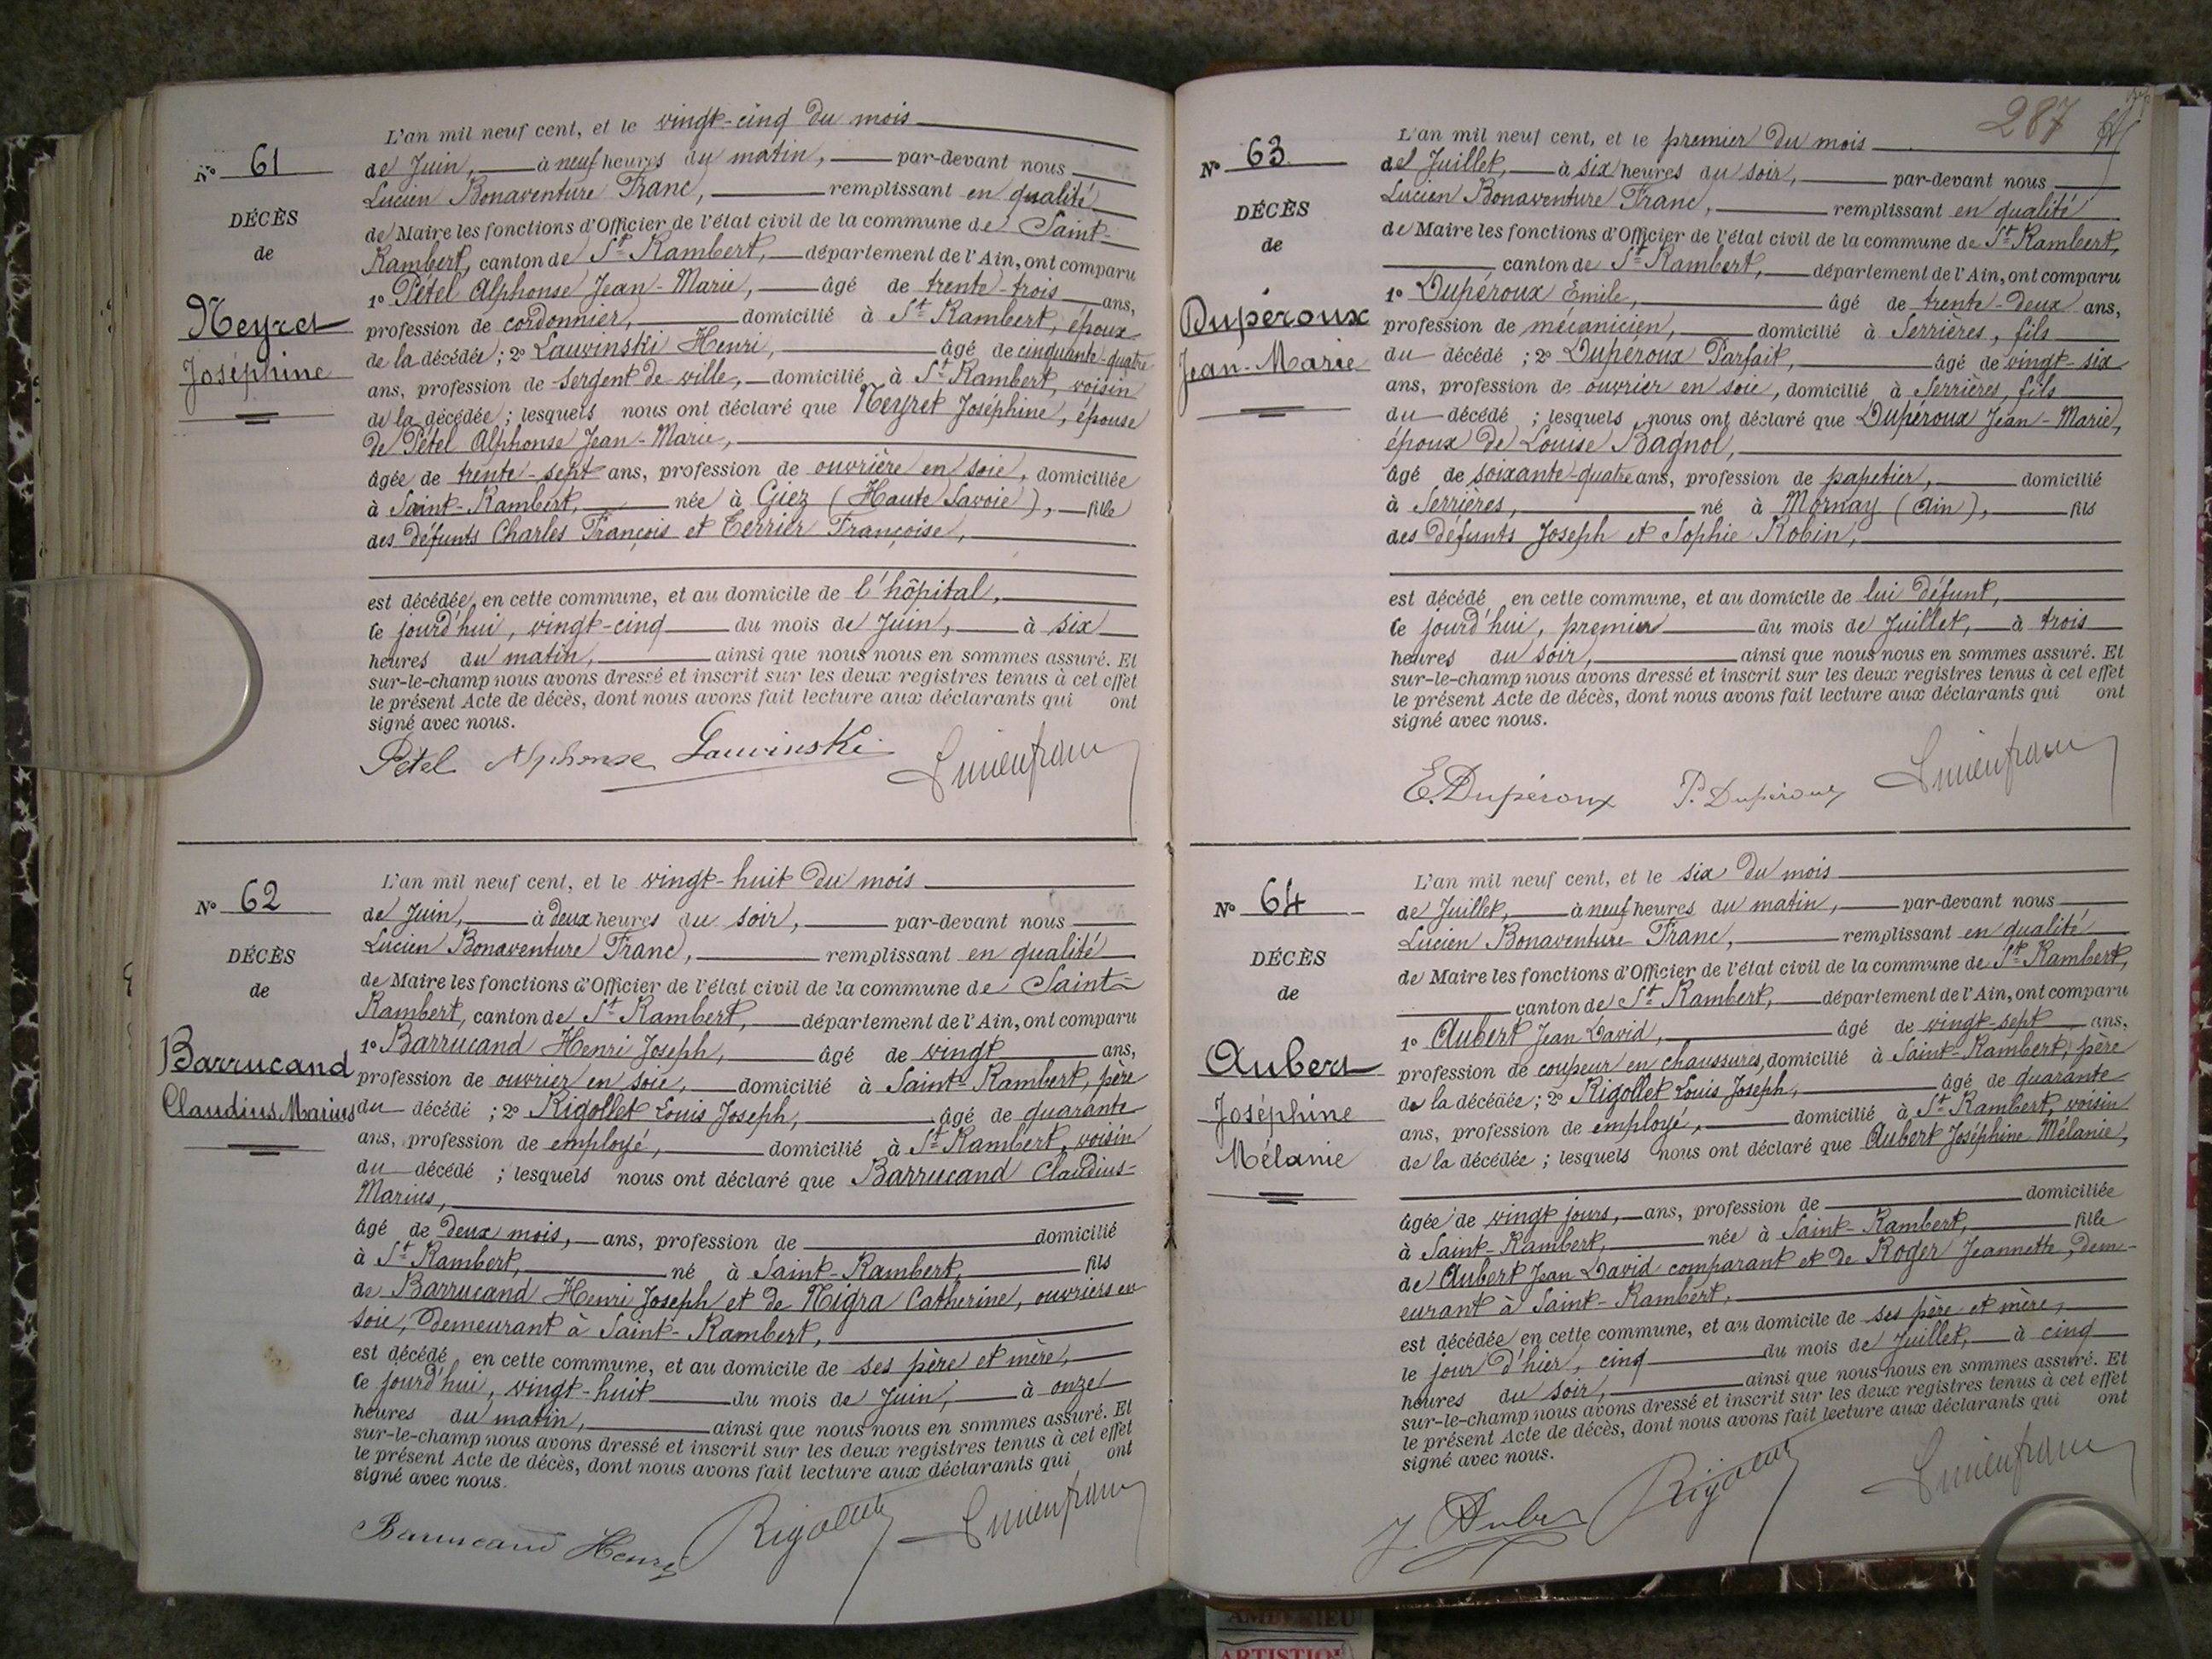 L'an mil neuf cent, et le vingt-cinq du mois
N° 61
de Juin, à neuf heures du matin, par-devant nous
Lucien Bonaventure Franc, remplissant en qualité
DÉCÈS
de
de Maire les fonctions d'Officier de l'état civil de la commune de Saint-
Rambert, canton de St Rambert, département de l'Ain, ont comparu
1° Pétel Alphonse Jean-Marie, âgé de trente-trois ans,
Neyret
Joséphine
profession de cordonnier, domicilié à St Rambert, époux
de la décédée; 2° Lauvinski Henri, âgé de cinquante-quatre
ans, profession de sergent de ville, domicilié à St Rambert, voisin
de la décédée; lesquels nous ont déclaré que Neyret Joséphine, épouse
de Pétel Alphonse Jean-Marie,
âgée de trente-sept ans, profession de ouvrière en soie, domiciliée
à Saint-Rambert, née à Giez (Haute Savoie), fille
des défunts Charles François et Terrier Françoise,
est décédée en cette commune, et au domicile de l'hôpital,
ce jourd'hui, vingt-cinq du mois de Juin, à six
heures du matin, ainsi que nous nous en sommes assuré. Et
sur-le-champ nous avons dressé et inscrit sur les deux registres tenus à cet effet
le présent Acte de décès, dont nous avons fait lecture aux déclarants qui ont
signé avec nous.
Pétel Alphonse Lauvinski Lucien franc
L'an mil neuf cent, et le vingt-huit du mois
N° 62
de Juin, à deux heures du soir, par-devant nous
Lucien Bonaventure Franc, remplissant en qualité
DÉCÈS
de
de Maire les fonctions d'Officier de l'état civil de la commune de Saint-
Rambert, canton de St Rambert, département de l'Ain, ont comparu
1° Barrucand Henri Joseph, âgé de vingt ans,
Barrucand
Claudius Marius
profession de ouvrier en soie, domicilié à Saint-Rambert, père
du décédé; 2° Rigollet Louis Joseph, âgé de quarante
ans, profession de employé, domicilié à St Rambert, voisin
du décédé; lesquels nous ont déclaré que Barrucand Claudius-
Marius,
âgé de deux mois, ans, profession de domicilié
à St Rambert, né à Saint-Rambert, fils
de Barrucand Henri Joseph et de Nigra Catherine, ouvriers en
soie, demeurant à Saint-Rambert,
est décédé en cette commune, et au domicile de ses père et mère,
ce jourd'hui, vingt-huit du mois de Juin, à onze
heures du matin, ainsi que nous nous en sommes assuré. Et
sur-le-champ nous avons dressé et inscrit sur les deux registres tenus à cet effet
le présent Acte de décès, dont nous avons fait lecture aux déclarants qui ont
signé avec nous.
Barrucand Henri Rigollet Lucien franc
287
L'an mil neuf cent, et le premier du mois
N° 63
de Juillet, à six heures du soir, par-devant nous
Lucien Bonaventure Franc, remplissant en qualité
DÉCÈS
de
de Maire les fonctions d'Officier de l'état civil de la commune de St Rambert,
canton de St Rambert, département de l'Ain, ont comparu
1° Dupéroux Emile, âgé de trente-deux ans,
Dupéroux
Jean-Marie
profession de mécanicien, domicilié à Serrières, fils
du décédé; 2° Dupéroux Parfait, âgé de vingt-six
ans, profession de ouvrier en soie, domicilié à Serrières, fils
du décédé; lesquels nous ont déclaré que Dupéroux Jean-Marie,
époux de Louise Bagnol,
âgé de soixante-quatre ans, profession de papetier, domicilié
à Serrières, né à Mornay (Ain), fils
des défunts Joseph et Sophie Robin,
est décédé en cette commune, et au domicile de lui défunt,
ce jourd'hui, premier du mois de Juillet, à trois
heures du soir, ainsi que nous nous en sommes assuré. Et
sur-le-champ nous avons dressé et inscrit sur les deux registres tenus à cet effet
le présent Acte de décès, dont nous avons fait lecture aux déclarants qui ont
signé avec nous.
E. Dupéroux P. Dupéroux Lucien franc
L'an mil neuf cent, et le six du mois
N° 64
de Juillet, à neuf heures du matin, par-devant nous
Lucien Bonaventure Franc, remplissant en qualité
DÉCÈS
de
de Maire les fonctions d'Officier de l'état civil de la commune de St Rambert,
canton de St Rambert, département de l'Ain, ont comparu
1° Aubert Jean David, âgé de vingt-sept ans,
Aubert
Joséphine
Mélanie
profession de coupeur en chaussures, domicilié à Saint-Rambert, père
de la décédée; 2° Rigollet Louis Joseph, âgé de quarante
ans, profession de employé, domicilié à St Rambert, voisin
de la décédée; lesquels nous ont déclaré que Aubert Joséphine Mélanie,
âgée de vingt jours, ans, profession de domiciliée
à Saint-Rambert, née à Saint-Rambert, fille
de Aubert Jean David comparant et de Roger Jeannette, dem-
eurant à Saint-Rambert,
est décédée en cette commune, et au domicile de ses père et mère,
le jour d'hier, cinq du mois de Juillet, à cinq
heures du soir, ainsi que nous nous en sommes assuré. Et
sur-le-champ nous avons dressé et inscrit sur les deux registres tenus à cet effet
le présent Acte de décès, dont nous avons fait lecture aux déclarants qui ont
signé avec nous.
J Aubert Rigollet Lucien franc
AMBERIEU
ARTISTIQ